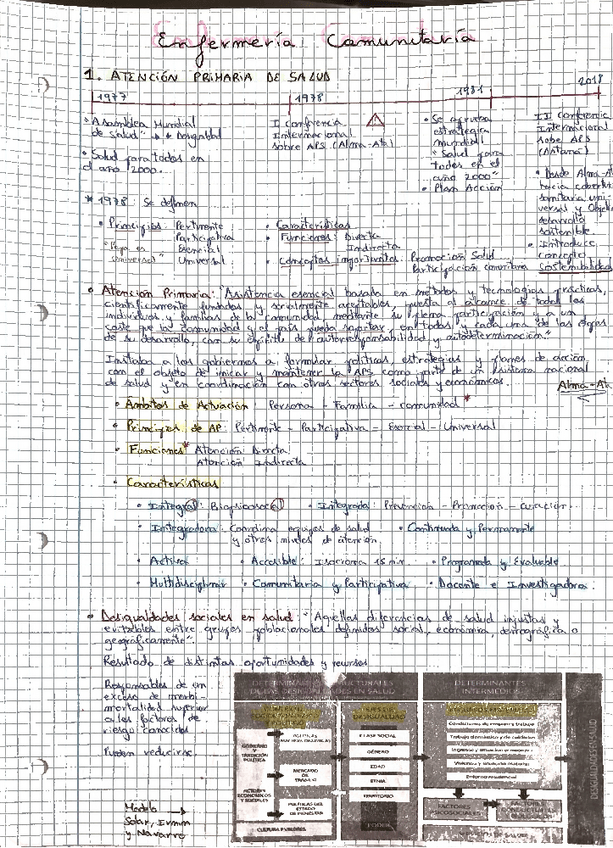 Enfermería Comunitaria
1. ATENCIÓN PRIMARIA DE SALUD
1977 1978 1981 2018
• Asamblea Mundial
de Salud" → Desigualdad
• Salud para todos en
el año 2000.
I Conferencia
Internacional
sobre APS (Alma-Ata)
• Se aprueba
estrategia
mundial
"Salud para
todos en el
año 2000"
• Plan Acción
II Conferencia
Internacional
sobre APS
(Astaná)
• Desde Alma-At
hacia cobertura
sanitaria uni-
versal y Objeti
desarrollo
sostenible.
• Introduce
concepto
sostenibilidad
* 1978 Se definen
• Principios: Pertinente
Participativa
Esencial
Universal
"Pepa es
Universal"
• Características
• Funciones: Directa
Indirecta
• Conceptos importantes: Promoción Salud
Participación comunitaria
• Atención Primaria: "Asistencia esencial basada en métodos y tecnologías prácticas,
científicamente fundados y socialmente aceptables, puesta al alcance de todos los
individuos y familias de la comunidad, mediante su plena participación y a un
coste que la comunidad y el país pueda soportar, en todas y cada una de las etapas
de su desarrollo, con su espíritu de autorresponsabilidad y autodeterminación."
Instaba a los gobiernos a formular políticas, estrategias y planes de acción
con el objeto de iniciar y mantener la APS como parte de un sistema nacional
de salud y en coordinación con otros sectores sociales y económicos.
Alma-At
• Ámbitos de Actuación Persona - Familia - comunidad *
• Principios de AP: Pertinente - Participativa - Esencial - Universal
• Funciones * Atención Directa
Atención Indirecta
• Características
• Integral: Biopsicosocial • Integrada: Prevención - Promoción - curación.
• Integradora: Coordina equipos de salud • Continuada y Permanente
y otros niveles de atención
• Activa • Accesible: Isocrona 15 min. • Programada y Evaluable
• Multidisciplinar • Comunitaria y Participativa • Docente e Investigadora.
• Desigualdades sociales en salud "Aquellas diferencias de salud injustas y
evitables entre grupos poblacionales definidos social, económica, demográfica o
geográficamente".
Resultado de distintas oportunidades y recursos
Responsables de un
exceso de morbi-
mortalidad superior
a los factores de
riesgo conocidos
Pueden reducirse.
Modelo →
Solar, Irwin
y Navarro
DETERMINANTES ESTRUCTURALES
DE LAS DESIGUALDADES EN SALUD
DETERMINANTES
INTERMEDIOS
GOBIERNO
Y
TRADICIÓN
POLÍTICA
ACTORES
ECONÓMICOS
Y SOCIALES
MERCADO
DE
TRABAJO
POLÍTICAS DEL
ESTADO
DE BIENESTAR
CULTURA Y VALORES
CLASE SOCIAL
GÉNERO
EDAD
ETNIA
TERRITORIO
PODER
FACTORES
PSICOSOCIALES
FACTORES
DESIGUALDAD EN SALUD